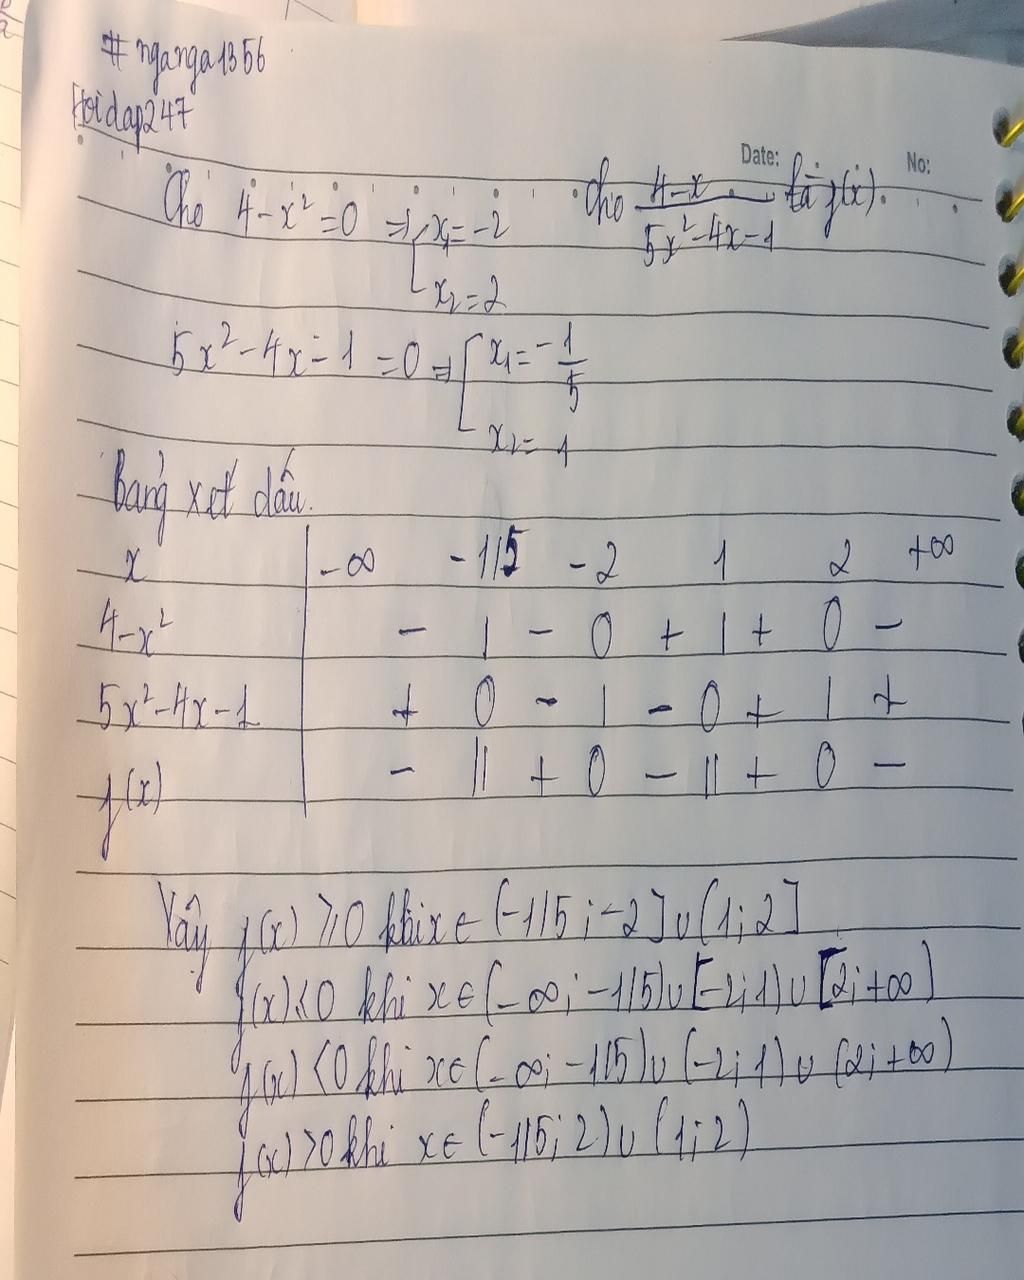 # nganga1356
Hoidap247
Date: No:
Cho 4-x² =0 => [ x₁= -2 Cho (4-x)/(5x²-4x-1) là f(x).
x₂ = 2
5x²-4x-1 =0 => [ x₁= -1/5
x₂= 1
Bảng xét dấu.
x | -∞ -1/5 -2 1 2 +∞
4-x² | - | - 0 + | + 0 -
5x²-4x-1 | + 0 - | - 0 + | +
f(x) | - || + 0 - || + 0 -
Vậy f(x) ⩾0 khi x ∈ (-1/5 ; -2] ∪ (1; 2]
f(x) ⩽ 0 khi x ∈ (-∞; -1/5) ∪ [-2; 1) ∪ [2; +∞)
f(x) <0 khi x ∈ (-∞; -1/5) ∪ (-2; 1) ∪ (2; +∞)
f(x) >0 khi x ∈ (-1/5; 2) ∪ (1; 2)